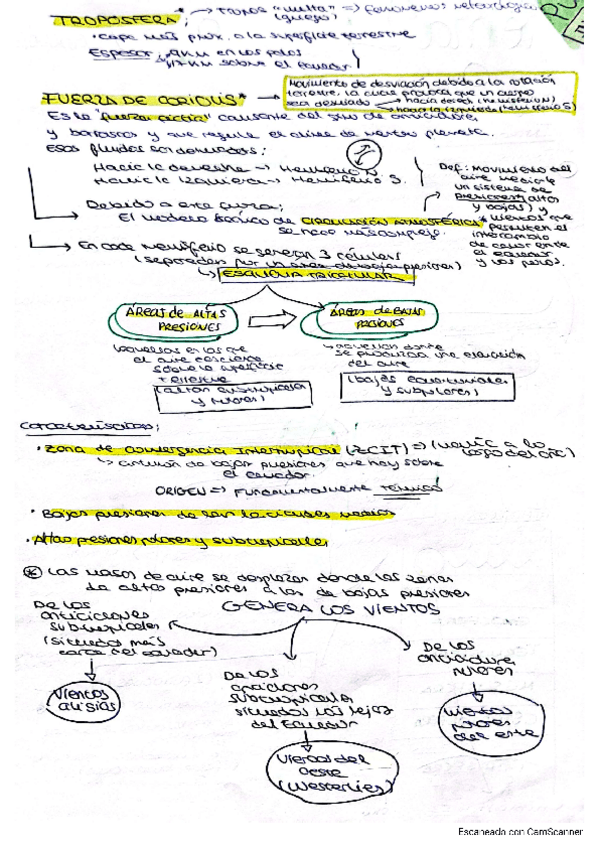 TROPOSFERA;
→ TROPOS "vuelta" => Fenómenos meteorológicos
(griego)
• capa más próx. a la superficie terrestre
Espesor
9km en los polos
17km sobre el ecuador
Movimiento de desviación debido a la rotación
terrestre, la cual provoca que un cuerpo
sea desviado → hacia derech (hemisferio N)
→ hacia la izquierda (hemisferio S)
FUERZA DE CORIOLIS*
Es la "fuerza ficticia" causante del giro de anticiclones
y borrascas y que regula el clima de nuestro planeta.
Esos fluidos son desviados;
Hacia la derecha → Hemisferio N.
Hacia la izquierda → Hemisferio S.
Def: movimiento del
aire mediante
un sistema de
presiones (altas
y bajas) y
vientos que
permiten el
intercambio
de calor entre
el ecuador
y los polos.
Debido a esta fuerza;
El modelo teórico de CIRCULACIÓN ATMOSFÉRICA *
se hace más complejo.
→ En cada hemisferio se generan 3 células
(separadas por un área de bajas presiones)
↳ ESQUEMA TRICELULAR
ÁREAS de ALTAS
PRESIONES
ÁREAS de BAJAS
PRESIONES
↳ aquellas en las que
el aire desciende
sobre la superficie
terrestre
(altas subtropicales
y polares)
↳ aquellas donde
se produzca una elevación
del aire
(bajas ecuatoriales
y subpolares)
Características;
• Zona de convergencia intertropical (ZCIT) => (varía a lo
largo del año)
↳ cinturón de bajas presiones que hay sobre
el ecuador.
ORIGEN => Fundamentalmente térmico
• Bajas presiones de las latitudes medias
• Altas presiones polares y subtropicales
* Las masas de aire se desplazan desde las zonas
de altas presiones a las de bajas presiones
GENERA LOS VIENTOS
De los
anticiclones
subtropicales
(situados más
cerca del ecuador)
Vientos
alisios
De los
anticiclones
subtropicales
situados los lejos
del Ecuador
Vientos del
Oeste
(Westerlies)
De los
anticiclones
polares
Vientos
polares
del este
Escaneado con CamScanner